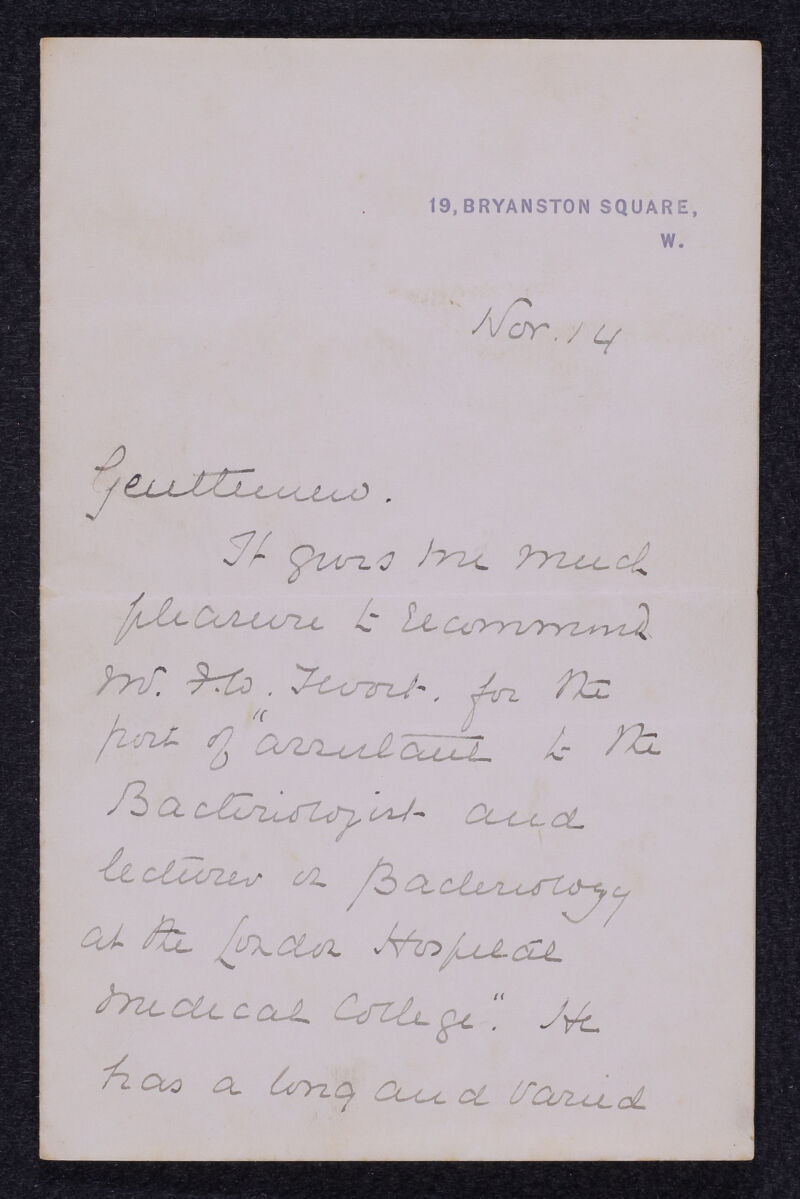 19, BRYANSTON SQUARE,
W.
Nov. 14
Gentlemen.
It gives me much
pleasure to recommend
Mr. F.W. Twort. for the
post of "assistant to the
Bacteriologist and
lecturer on Bacteriology
at the London Hospital
Medical College". He
has a long and varied